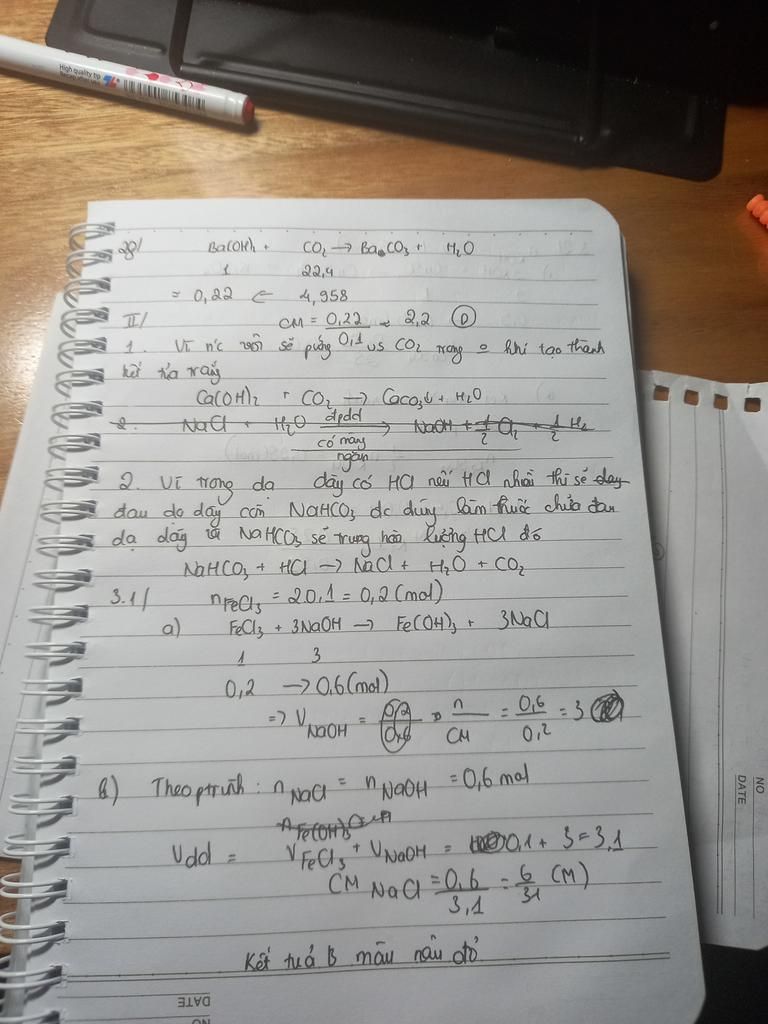 High quality tip
28/ Ba(OH)₂ + CO₂ → BaCO₃ + H₂O
1 22,4
= 0,22 ← 4,958
II/ CM = 0,22 / 0,1 = 2,2 (D)
1. Vì nc vôi sẽ pứng vs CO₂ trong o khí tạo thành
kết tủa trắng
Ca(OH)₂ + CO₂ → CaCO₃↓ + H₂O
2. NaCl + H₂O đpdd có màng ngăn → NaOH + 1/2 Cl₂ + 1/2 H₂
2. Vì trong dạ dày có HCl nếu HCl nhiều thì sẽ đay
đau dạ dày còn NaHCO₃ đc dùng làm thuốc chữa đau
dạ dày vì NaHCO₃ sẽ trung hòa lượng HCl đó
NaHCO₃ + HCl → NaCl + H₂O + CO₂
3.1/ nFeCl₃ = 2.0,1 = 0,2 (mol)
a) FeCl₃ + 3NaOH → Fe(OH)₃ + 3NaCl
1 3
0,2 → 0,6 (mol)
=> V NaOH = n / CM = 0,6 / 0,2 = 3
b) Theo ptrình: n NaCl = n NaOH = 0,6 mol
n Fe(OH)₃
Vdd = V FeCl₃ + V NaOH = 0,1 + 3 = 3,1
CM NaCl = 0,6 / 3,1 = 6 / 31 (M)
Kết tuả B màu nâu đỏ
DATE
NO
NO
DATE